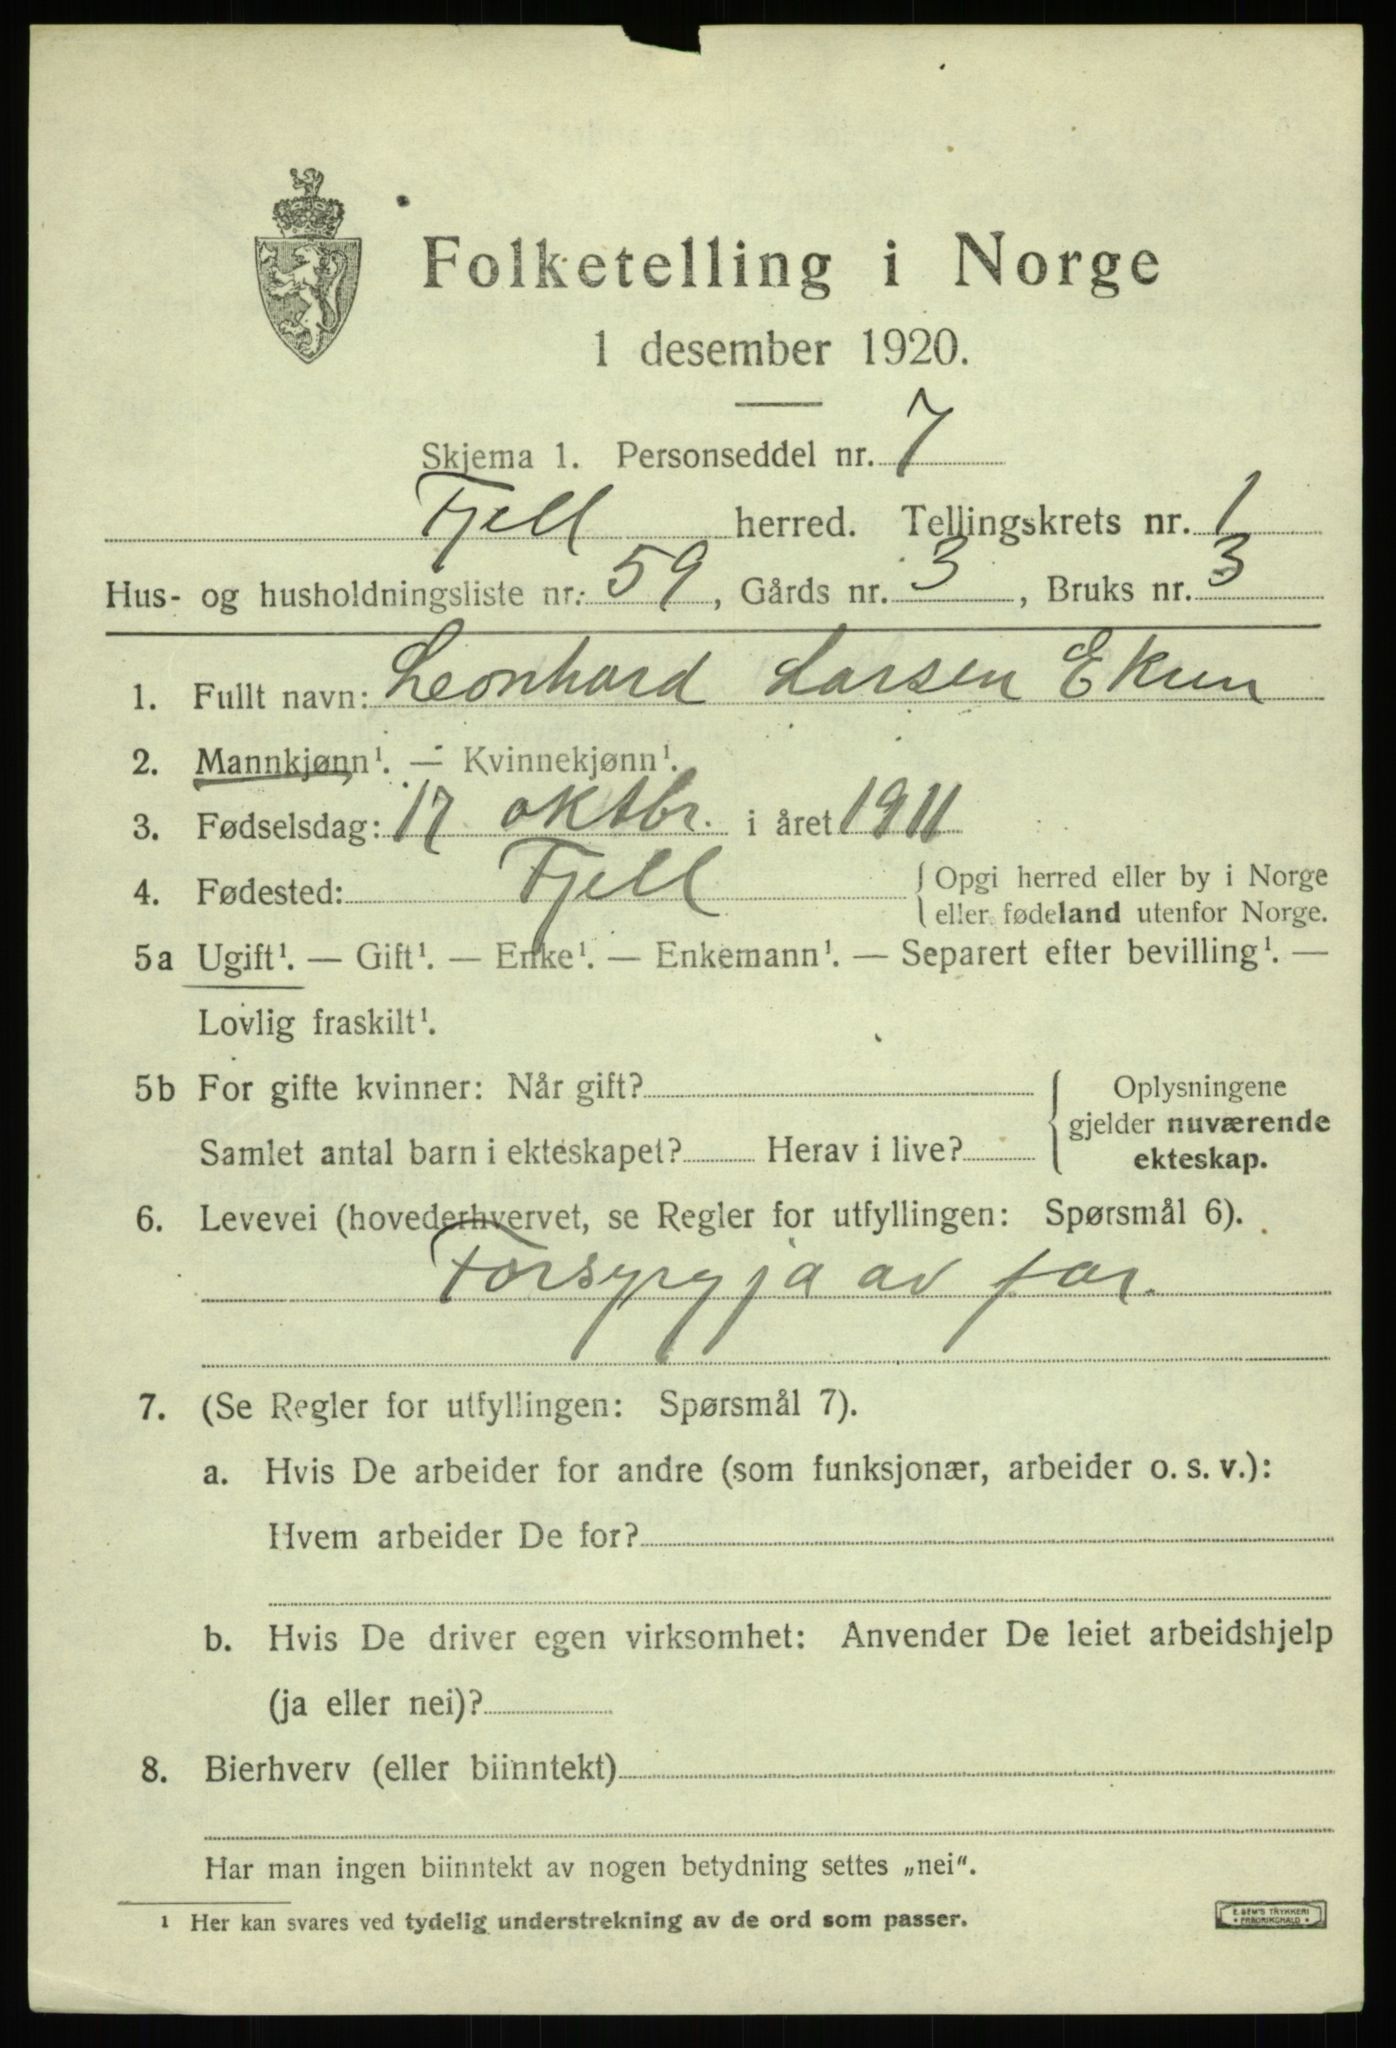 Folketelling i Norge
1 desember 1920.
Skjema 1. Personseddel nr. 7
Fjell herred. Tellingskrets nr. 1
Hus- og husholdningsliste nr. 59, Gårds nr. 3, Bruks nr. 3
1. Fullt navn: Leonhard Larsen Ekren
2. Mannkjønn¹. — Kvinnekjønn¹.
3. Fødselsdag: 17 oktbr. i året 1911
4. Fødested: Fjell { Opgi herred eller by i Norge
eller fødeland utenfor Norge.
5a Ugift¹. — Gift¹. — Enke¹. — Enkemann¹. — Separert efter bevilling¹. —
Lovlig fraskilt¹.
5b For gifte kvinner: Når gift? { Oplysningene
gjelder nuværende
Samlet antal barn i ekteskapet? Herav i live? ekteskap.
6. Levevei (hovederhvervet, se Regler for utfyllingen: Spørsmål 6).
Forsyrgja av far.
7. (Se Regler for utfyllingen: Spørsmål 7).
a. Hvis De arbeider for andre (som funksjonær, arbeider o. s. v.):
Hvem arbeider De for?
b. Hvis De driver egen virksomhet: Anvender De leiet arbeidshjelp
(ja eller nei)?
8. Bierhverv (eller biinntekt)
Har man ingen biinntekt av nogen betydning settes „nei“.
¹ Her kan svares ved tydelig understrekning av de ord som passer.
E. SEM'S TRYKKERI
• FREDRIKSHALD •